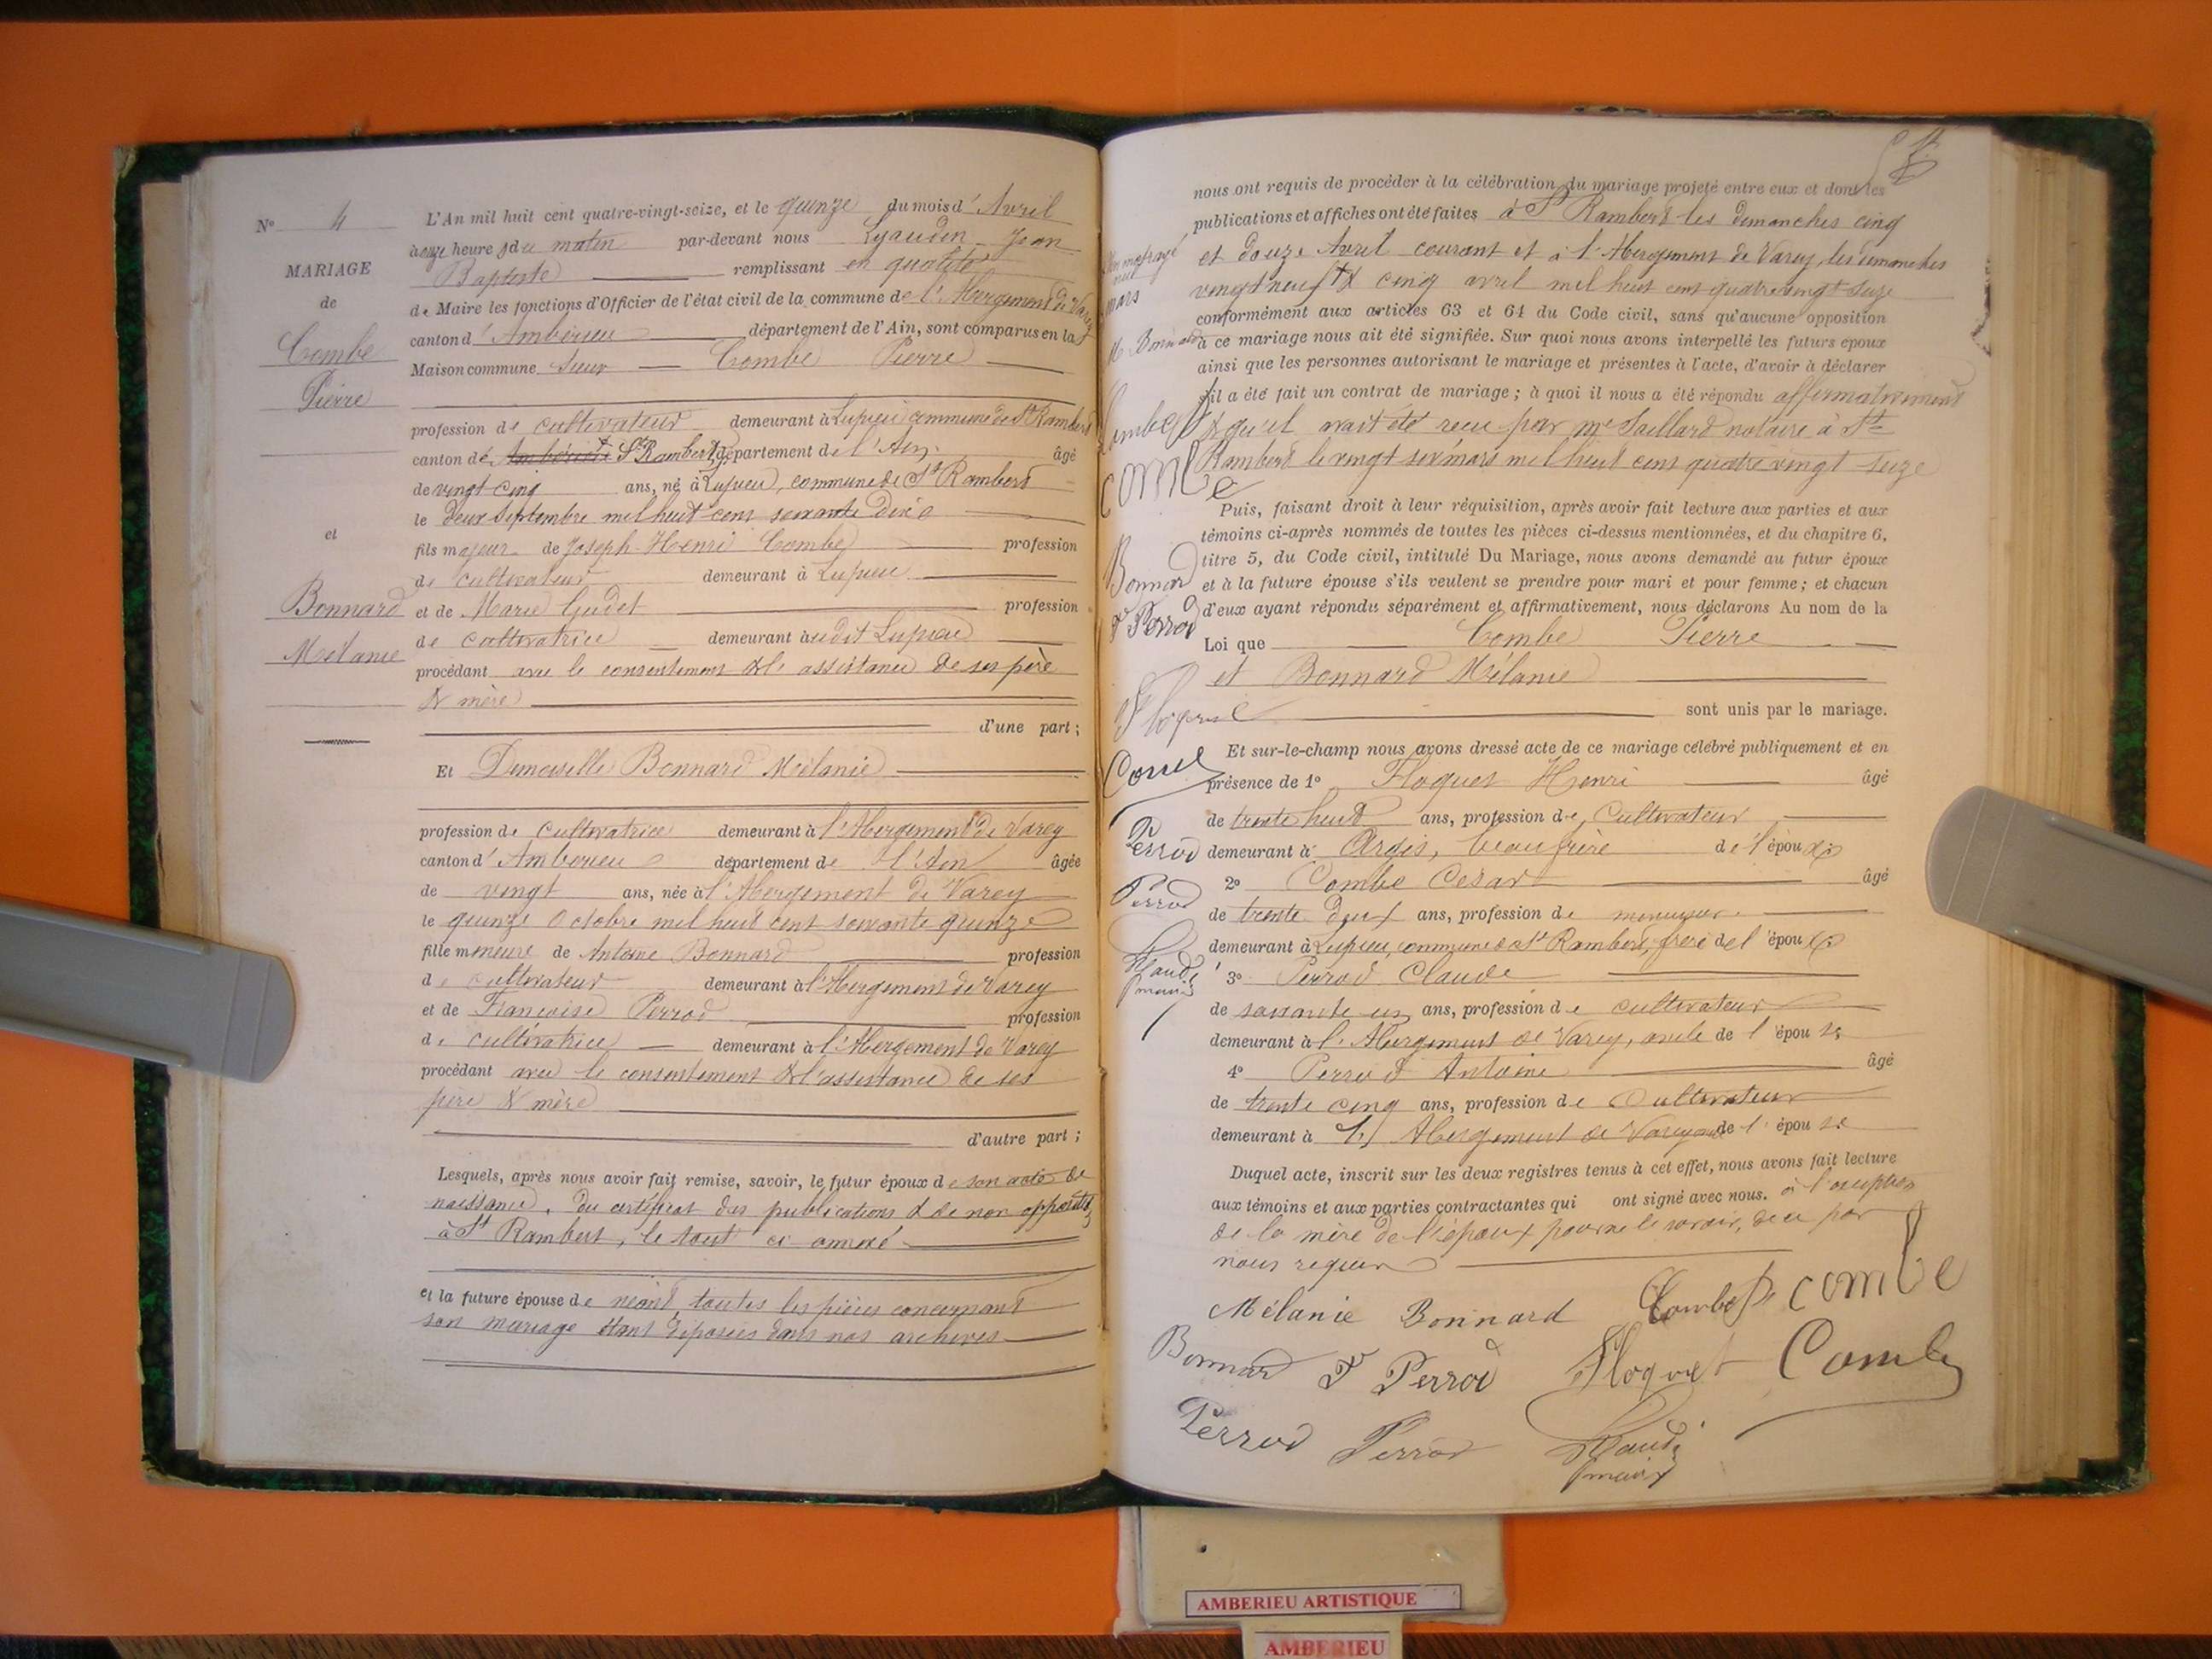 N° 4
MARIAGE
de
Combe
Pierre
et
Bonnard
Mélanie
L'An mil huit cent quatre-vingt-seize, et le quinze du mois d'Avril
à onze heures du matin par-devant nous Jean
Baptiste remplissant en qualité
de Maire les fonctions d'Officier de l'état civil de la commune de l'Abergement de Varey
canton d'Ambérieu département de l'Ain, sont comparus en la
Maison commune Sieur Combe Pierre
profession de cultivateur demeurant à Lupieu commune de St Rambert
canton de Ambérieu St Rambert département de l'Ain âgé
de vingt cinq ans, né à Lupieu, commune de St Rambert
le deux Septembre mil huit cent soixante dix
fils majeur de Joseph Henri Combe profession
de cultivateur demeurant à Lupieu
et de Marie Gudet profession
de cultivatrice demeurant audit Lupieu
procédant avec le consentement & l'assistance de ses père
& mère
d'une part ;
Et Demoiselle Bonnard Mélanie
profession de cultivatrice demeurant à l'Abergement de Varey
canton d'Ambérieu département de l'Ain âgée
de vingt ans, née à l'Abergement de Varey
le quinze Octobre mil huit cent soixante quinze
fille mineure de Antoine Bonnard profession
de cultivateur demeurant à l'Abergement de Varey
et de Françoise Perrod profession
de cultivatrice demeurant à l'Abergement de Varey
procédant avec le consentement & l'assistance de ses
père & mère
d'autre part ;
Lesquels, après nous avoir fait remise, savoir, le futur époux de son acte de
naissance, du certificat des publications & de non opposition
à St Rambert, le tout ci annexé
et la future épouse de néant, toutes les pièces concernant
son mariage étant déposées dans nos archives
nous ont requis de procéder à la célébration du mariage projeté entre eux et dont les
publications et affiches ont été faites à St Rambert les dimanches cinq
et douze Avril courant et à l'Abergement de Varey, les dimanches
vingt neuf & cinq avril mil huit cent quatre vingt seize
conformément aux articles 63 et 64 du Code civil, sans qu'aucune opposition
à ce mariage nous ait été signifiée. Sur quoi nous avons interpellé les futurs époux
ainsi que les personnes autorisant le mariage et présentes à l'acte, d'avoir à déclarer
s'il a été fait un contrat de mariage ; à quoi il nous a été répondu affirmativement
& qu'il avait été reçu par Me Saillard notaire à St
Rambert le vingt six mars mil huit cent quatre vingt seize
Puis, faisant droit à leur réquisition, après avoir fait lecture aux parties et aux
témoins ci-après nommés de toutes les pièces ci-dessus mentionnées, et du chapitre 6,
titre 5, du Code civil, intitulé Du Mariage, nous avons demandé au futur époux
et à la future épouse s'ils veulent se prendre pour mari et pour femme ; et chacun
d'eux ayant répondu séparément et affirmativement, nous déclarons Au nom de la
Loi que Combe Pierre
et Bonnard Mélanie
sont unis par le mariage.
Et sur-le-champ nous avons dressé acte de ce mariage célébré publiquement et en
présence de 1° Floquet Henri âgé
de trente huit ans, profession de Cultivateur
demeurant à Argis, beau frère de l'époux
2° Combe Cesar âgé
de trente deux ans, profession de menuisier
demeurant à Lupieu, commune de St Rambert, frère de l'époux
3° Perrod Claude
de soixante un ans, profession de cultivateur
demeurant à l'Abergement de Varey, oncle de l'épouse
4° Perrod Antoine âgé
de trente cinq ans, profession de Cultivateur
demeurant à L'Abergement de Varey de l'épouse
Duquel acte, inscrit sur les deux registres tenus à cet effet, nous avons fait lecture
aux témoins et aux parties contractantes qui ont signé avec nous. à l'exception
de la mère de l'époux pour ne le savoir, de ce par
nous requis
Mélanie Bonnard Combe P. combe
Bonnard F Perrod Floquet Combe
Perrod Perrod
mars
M Bonnard
Combe
Combe
Bonnard
F Perrod
Floquet
Combe
Perrod
Perrod
AMBERIEU ARTISTIQUE
AMBERIEU